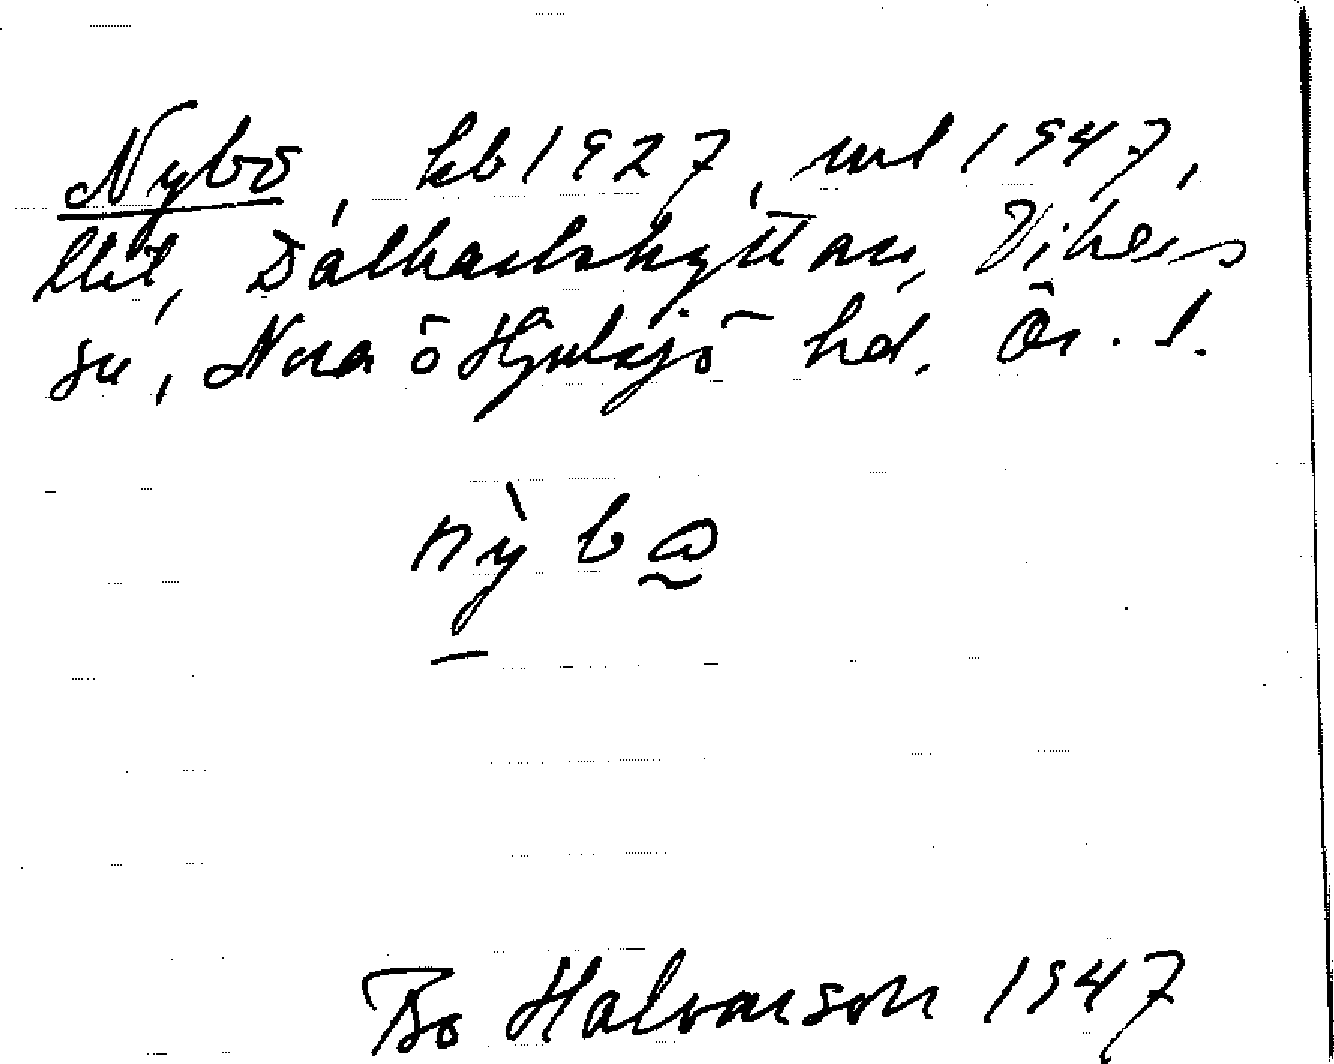 Nybo, kb 1927, uul 1947,
lht, Dalkarlshyttan, Vikers
sn, Nora o Hjulsjö hd. Ör. l.
nỳ b
Bo Halvarson 1947